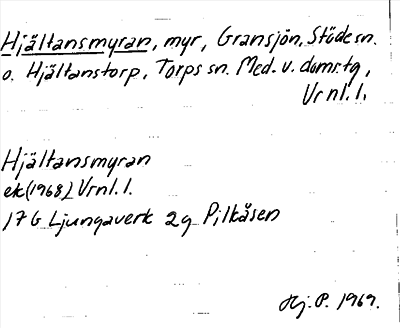 Hjältansmyran, myr, Gransjön, Stöde sn.
o. Hjältanstorp, Torps sn. Med. v. doms.tg,
Vrnl. l.
Hjältansmyran
ek(1968) Vrnl. l.
17G Ljungaverk 2g Pilkåsen
Hj. P. 1969.